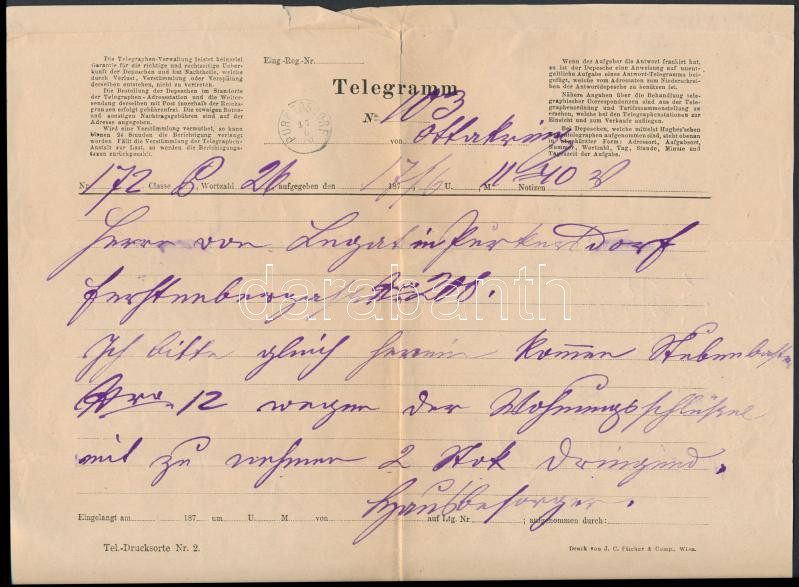 Die Telegraphen-Verwaltung leistet keinerlei
Garantie für die richtige und rechtzeitige Ueber-
kunft der Depeschen und hat Nachtheile, welche
durch Verlust, Verstümmlung oder Verspätung
derselben entstehen, nicht zu vertreten.
Die Bestellung der Depeschen im Standorte
der Telegraphen-Adressstation und die Weiter-
sendung derselben mit Post innerhalb des Reichs-
gebietes erfolgt gebührenfrei. Die etwaigen Boten-
und sonstigen Nachtragsgebühren sind auf der
Adresse angegeben.
Wird eine Verstümmlung vermuthet, so kann
binnen 24 Stunden die Berichtigung verlangt
werden. Fällt die Verstümmlung der Telegraphen-
Anstalt zur Last, so werden die Berichtigungs-
taxen zurückgezahlt.
Eing.-Reg.-Nr.
Telegramm
No. 103
von Ottakring
PURKERSDORF
17
6
Wenn der Aufgeber die Antwort frankirt hat,
so ist der Depesche eine Anweisung auf unent-
geltliche Aufgabe eines Antwort-Telegramms bei-
gefügt, welche vom Adressaten zum Niederschrei-
ben der Antwortdepesche zu benützen ist.
Nähere Angaben über die Behandlung tele-
graphischer Correspondenzen sind aus der Tele-
graphenordnung und Tarifzusammenstellung zu
ersehen, welche bei den Telegraphenstationen zur
Einsicht und zum Verkaufe aufliegen.
Bei Depeschen, welche mittelst Hughes'schen
Typentelegraphen aufgenommen sind, steht oben in
abgekürzter Form: Adressort, Aufgabsort,
Nummer, Wortzahl, Tag, Stunde, Minute und
Tageszeit der Aufgabe.
Nr. 172 Classe B, Wortzahl 26 aufgegeben den 17/6 187 U. M. 11 40 Notizen
Herrn von Legat in Purkersdorf
Ferstenbergasse No 208.
darabanth
Ich bitte gleich herein kommen Stubenbastei
Nro 12 wegen der Wohnungsschlüssel
mit zu nehmen 2 Stok Dringend.
Hausbesorger.
Eingelangt am 187 um U. M von auf Ltg. Nr. ; aufgenommen durch:
Tel.-Drucksorte Nr. 2.
Druck von J. C. Fischer & Comp., Wien.